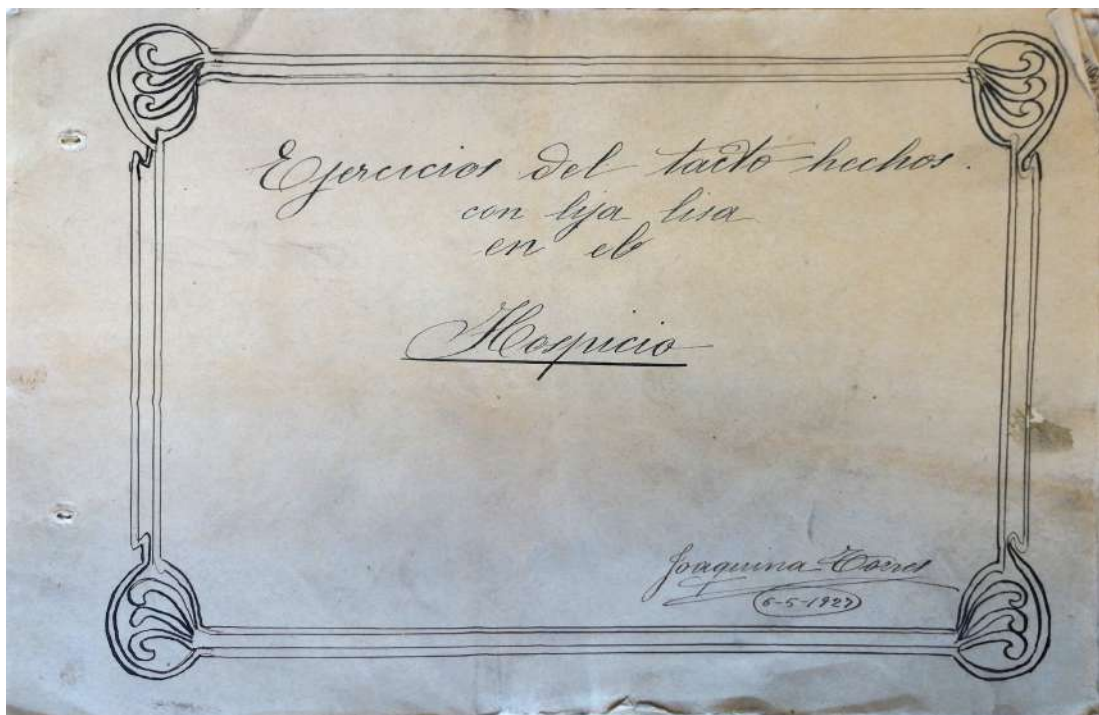 Ejercicios del tacto hechos.
con lija lisa
en el
Hospicio
Joaquina Torres
6-5-1927